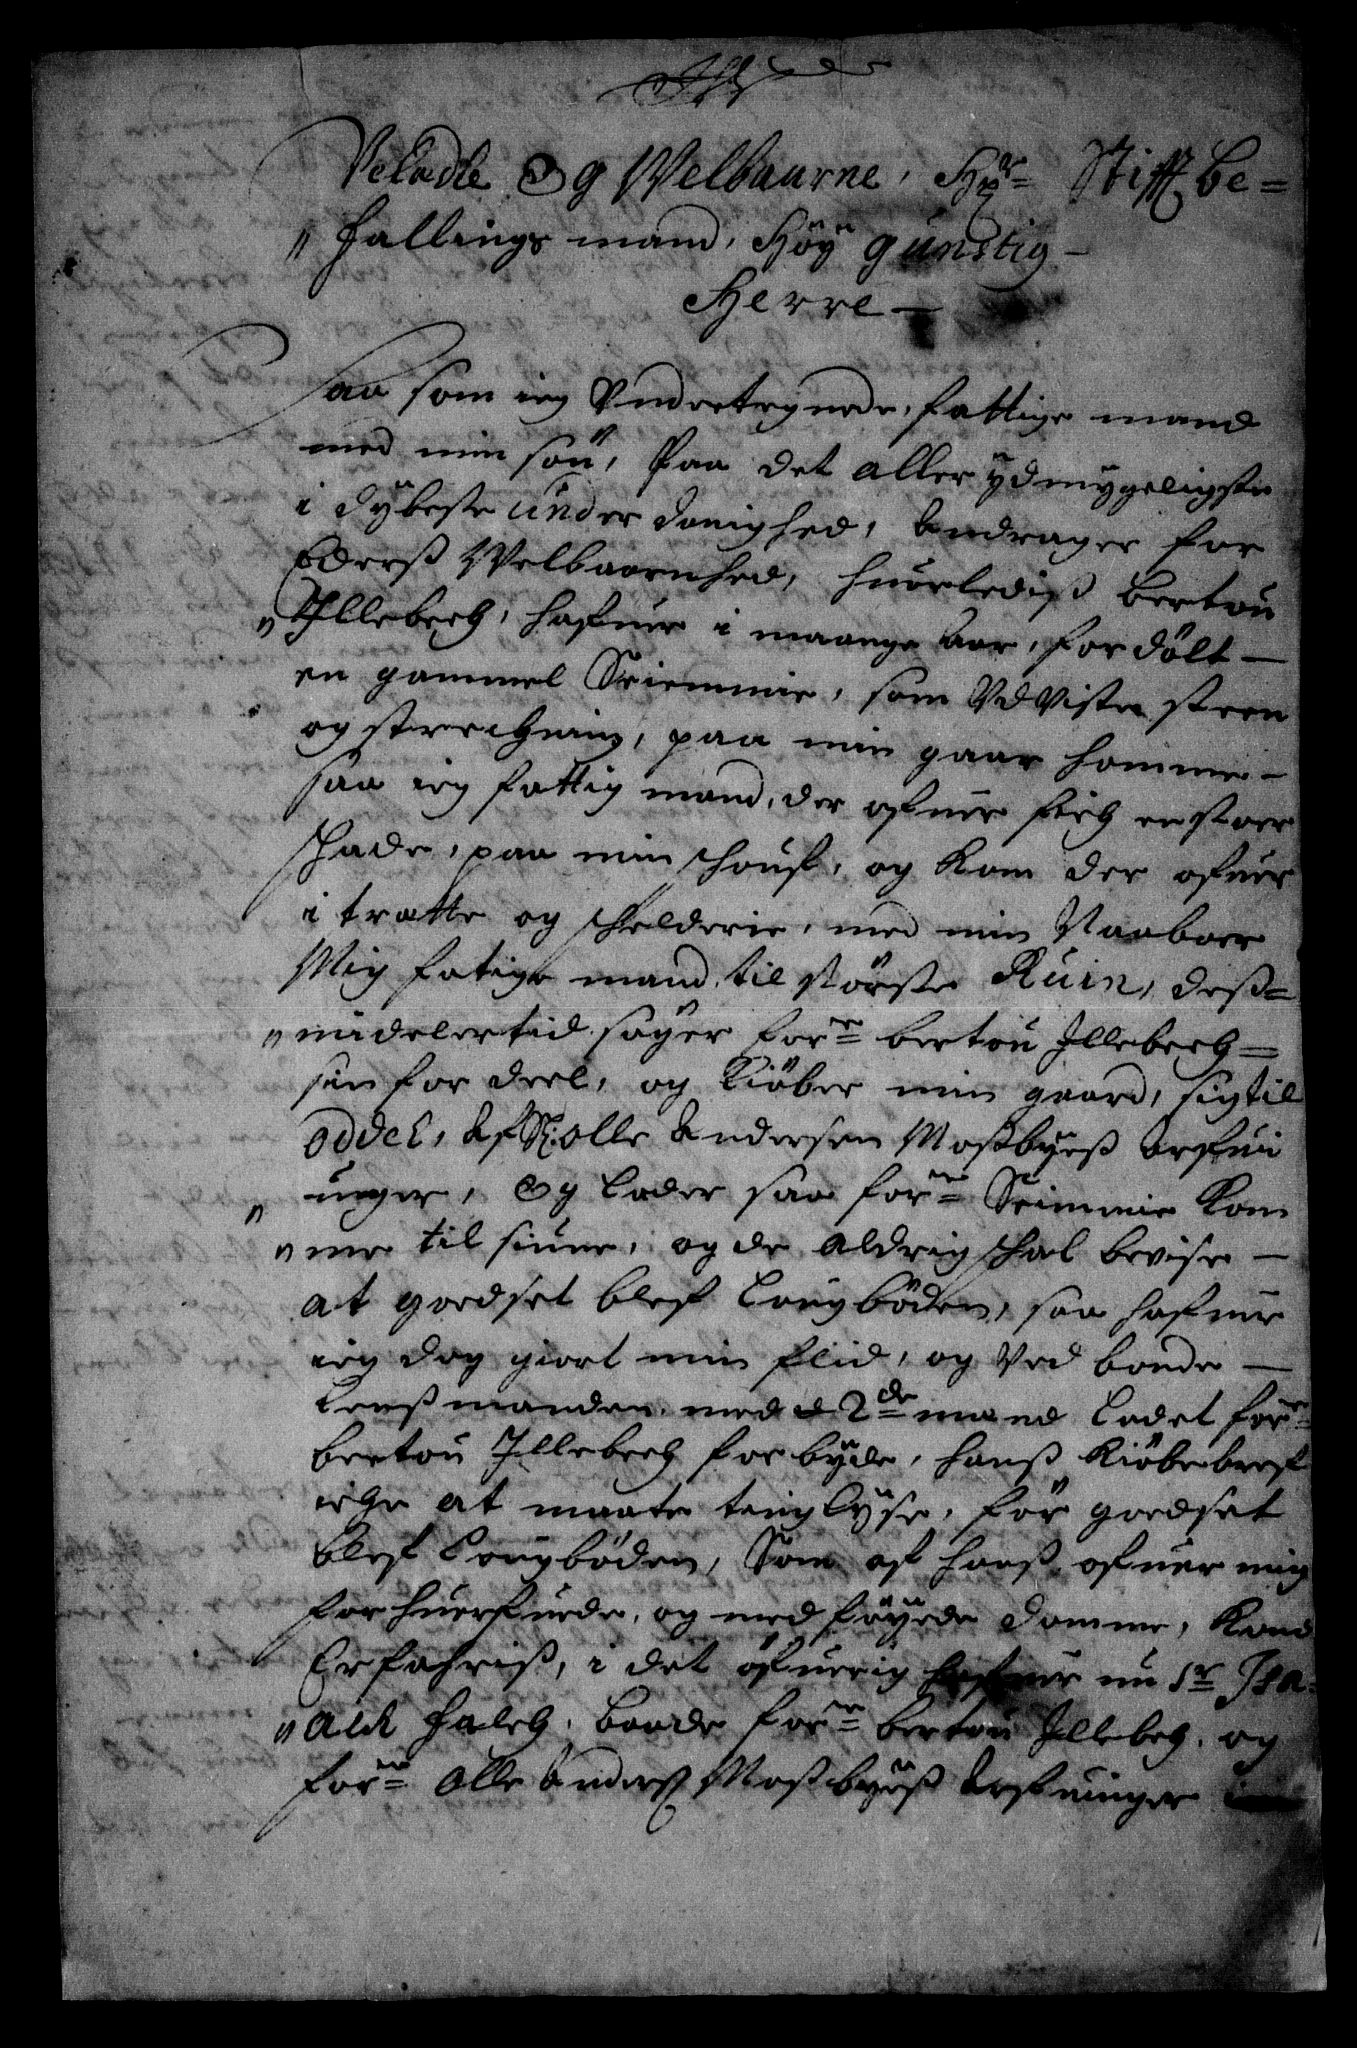 Veladle Og Welbaarne, Hr= Stiffbe=
„ fallings mand, Höÿ gunstig –
Herre –
Saa som ieg Undertegnede, fattige mand
med min søn, Paa det aller ÿdmygeligste
i dÿbeste underdanighed, Andrager for
Ederß Welbaarenhed, huorlediß bertou
„ Illebech, hafuer i maange Aar, fordölt –
en gammel Skiemmie, som Udviste steen
og streckning, paa min gaar homme –
saa ieg fattig mand, der ofuer fich en stoer
schade, paa min schouf, og kom der ofuer
i trætte og schelderie, med min Naaboer
Mig fatige mand til störste Ruin, deß=
„ midelertid søger forne bertou Illebech =
sin fordeel, og Kiöber min gaard, sig til
oddel, af Sr. olle Andersen Moßbÿeß Arfui
„ nger, Og lader saa forne Skimmie kom
„ me til siune, og de Aldrig schal bevise –
at goedset blef Lougböden, saa hafuer
ieg dog giort min flid, og Ved bonde –
Lenßmanden, med d 2de mand Ladet forne
bertou Illebech forbÿde, hanß Kiöbebref
iche at maate tinglÿse, för goedset
blef Lougböden, Som af hoß ofuer mig
forhuerfuede, og medföÿede domme, Kand
Erfahriß, i det öfuerig hafuer nu Sr Isa=
„ ach falch, baade forne bertou Illebech, og
forne Olle Anderß Moßbÿeß Arfuinger